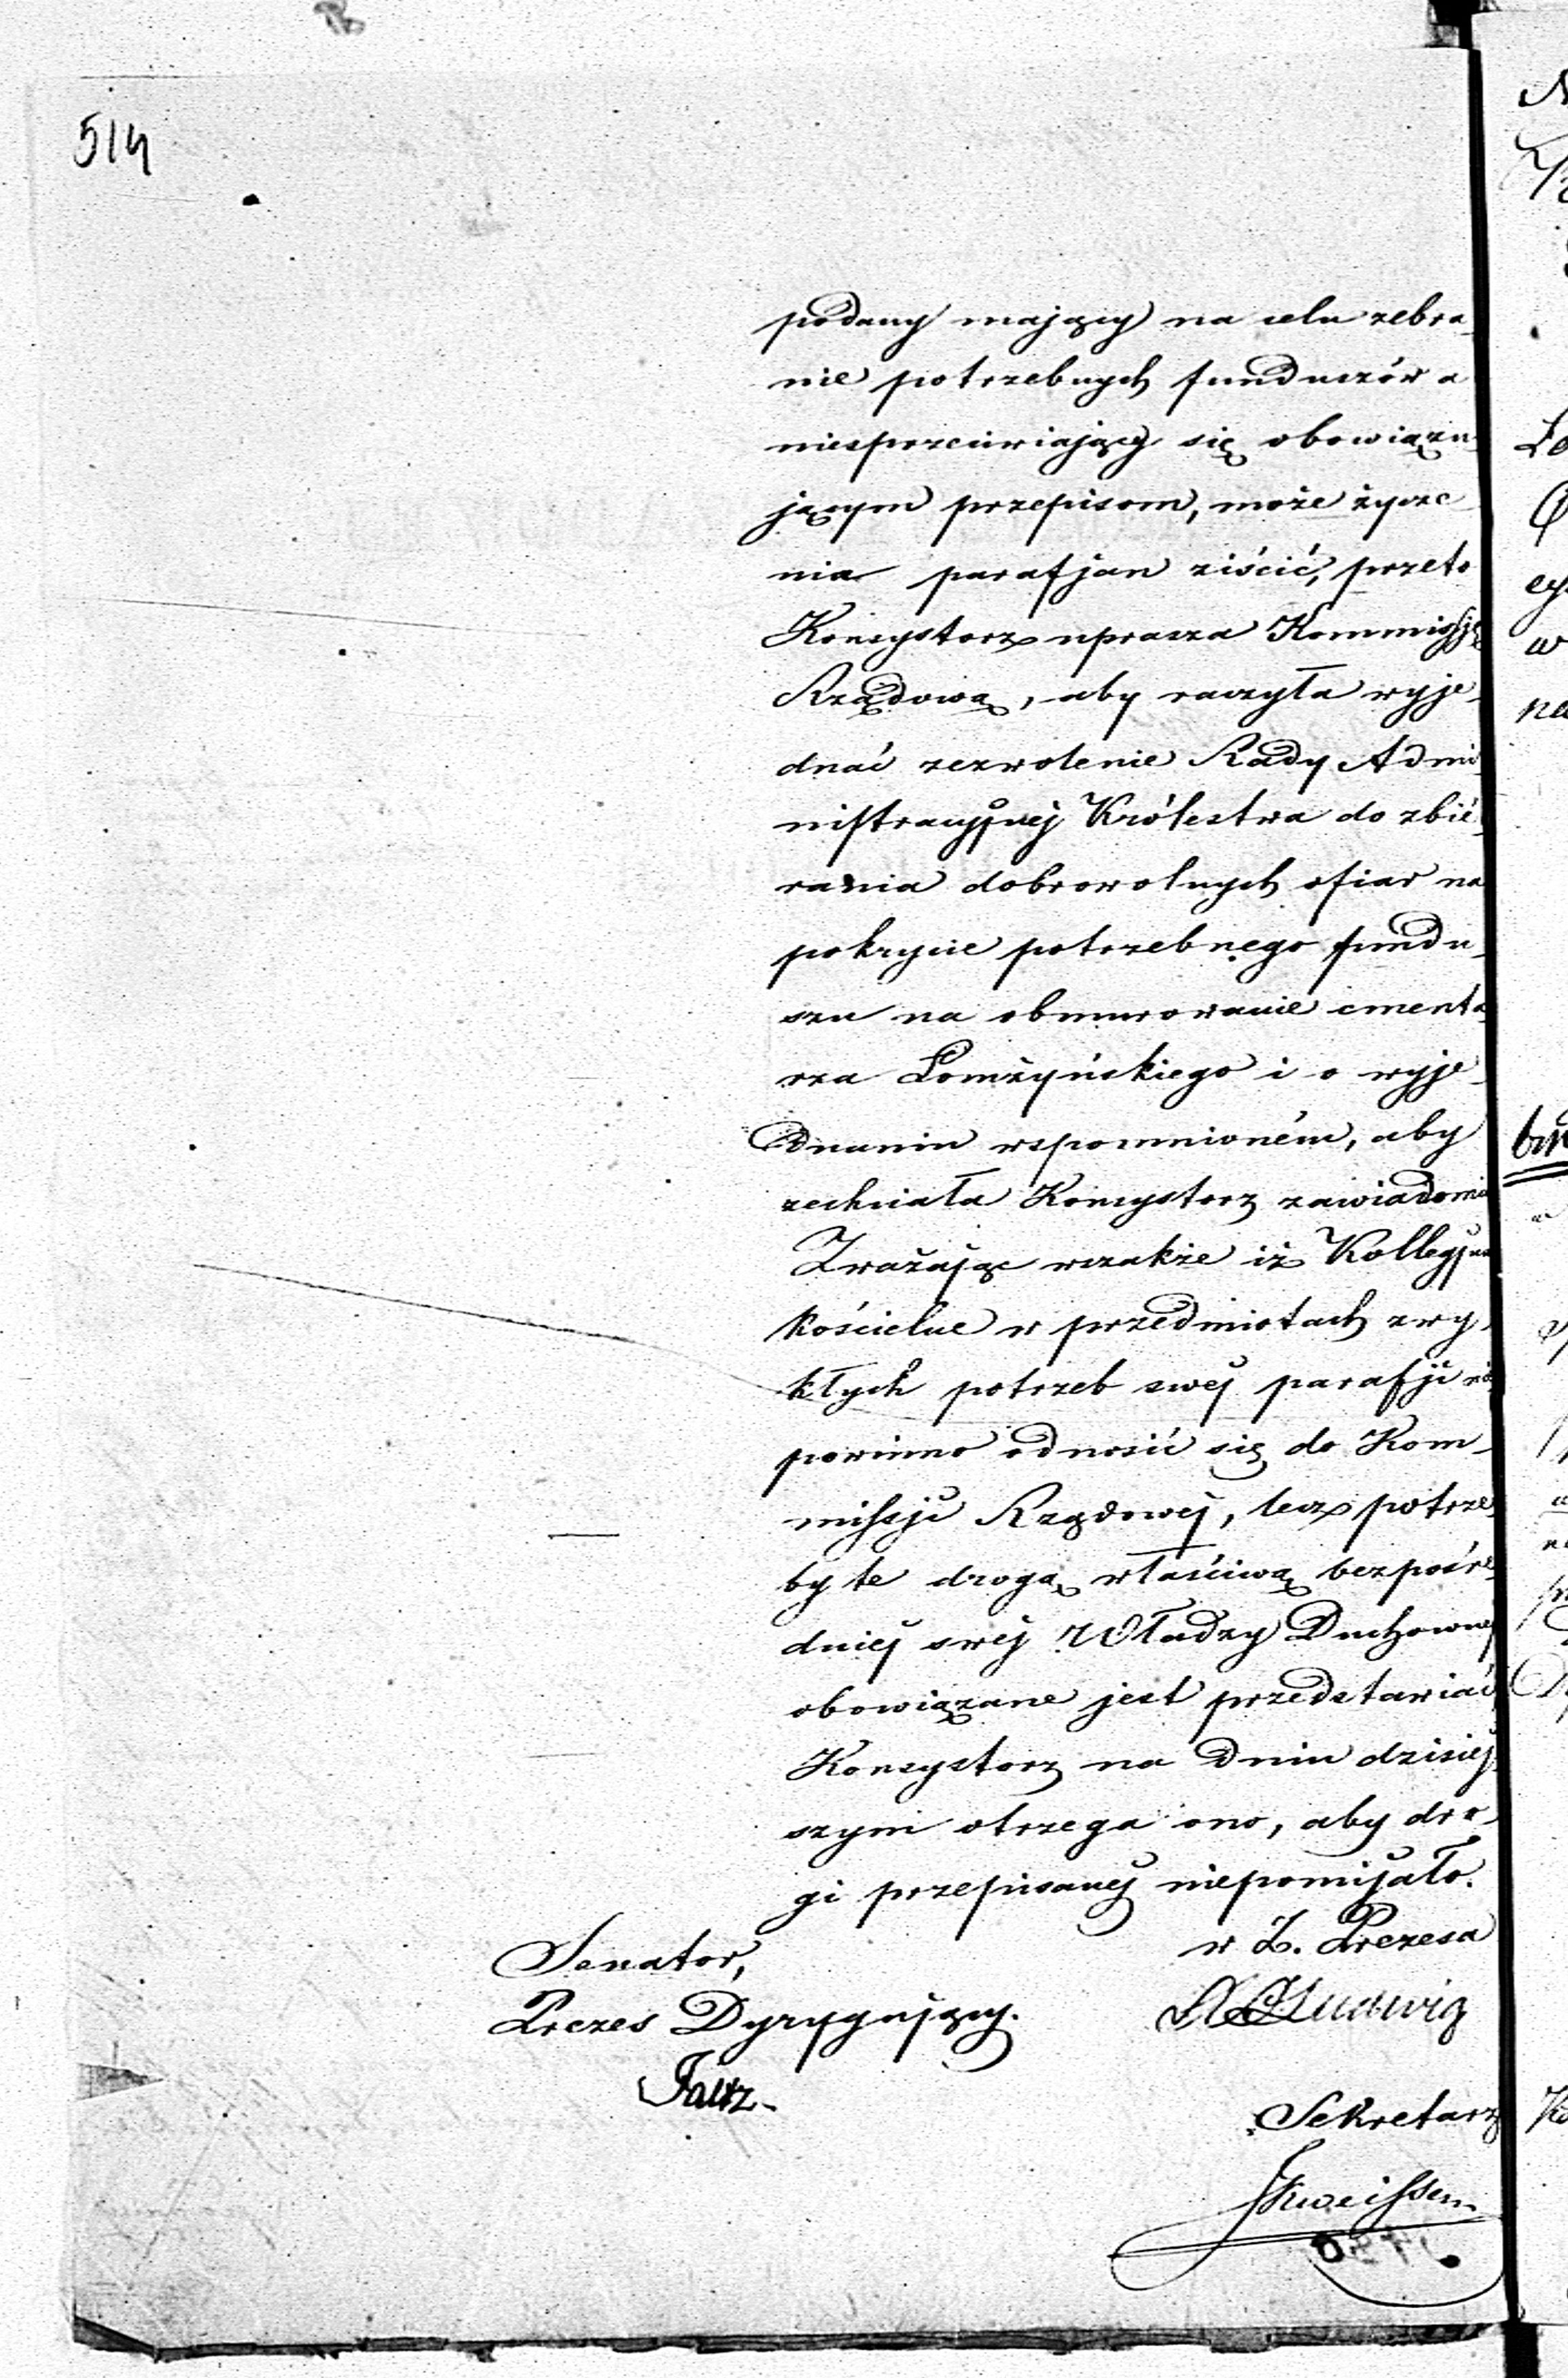 514
podany mający na celu zebra-
nie potrzebnych funduszów a
niesprzeciwiający się obowiązu-
jącym przepisom, może życze-
nia parafjan ziścić, przeto
Konsystorz uprasza Kommissję
Rządową, aby raczyła wyje-
dnać zezwolenie Rady Admi-
nistracyjnej Królestwa do zbié-
rania dobrowolnych ofiar na
pokrycie potrzebnego fundu-
szu na obmurowanie cmenta-
rza Łomżyńskiego i o wyje-
dnaniu wspomnioném, aby
zechciała Konsystorz zawiadomić
Zważając wszakże iż Kollegjum
kościelne w przedmiotach zwy-
kłych potrzeb swej parafji nie
powinno odnosić się do Kom-
missji Rządowej, lecz potrze-
by te drogą właściwą bezpośre-
dniej swej Władzy Duchownej
obowiązane jest przedstawiać
Konsystorz na dniu dzisiej-
szym ostrzega ono, aby dro-
gi przepisanej niepomijało.
w Z. Prezesa
Senator,
Prezes Dyrygujący.
Ludwig
Sekretarz